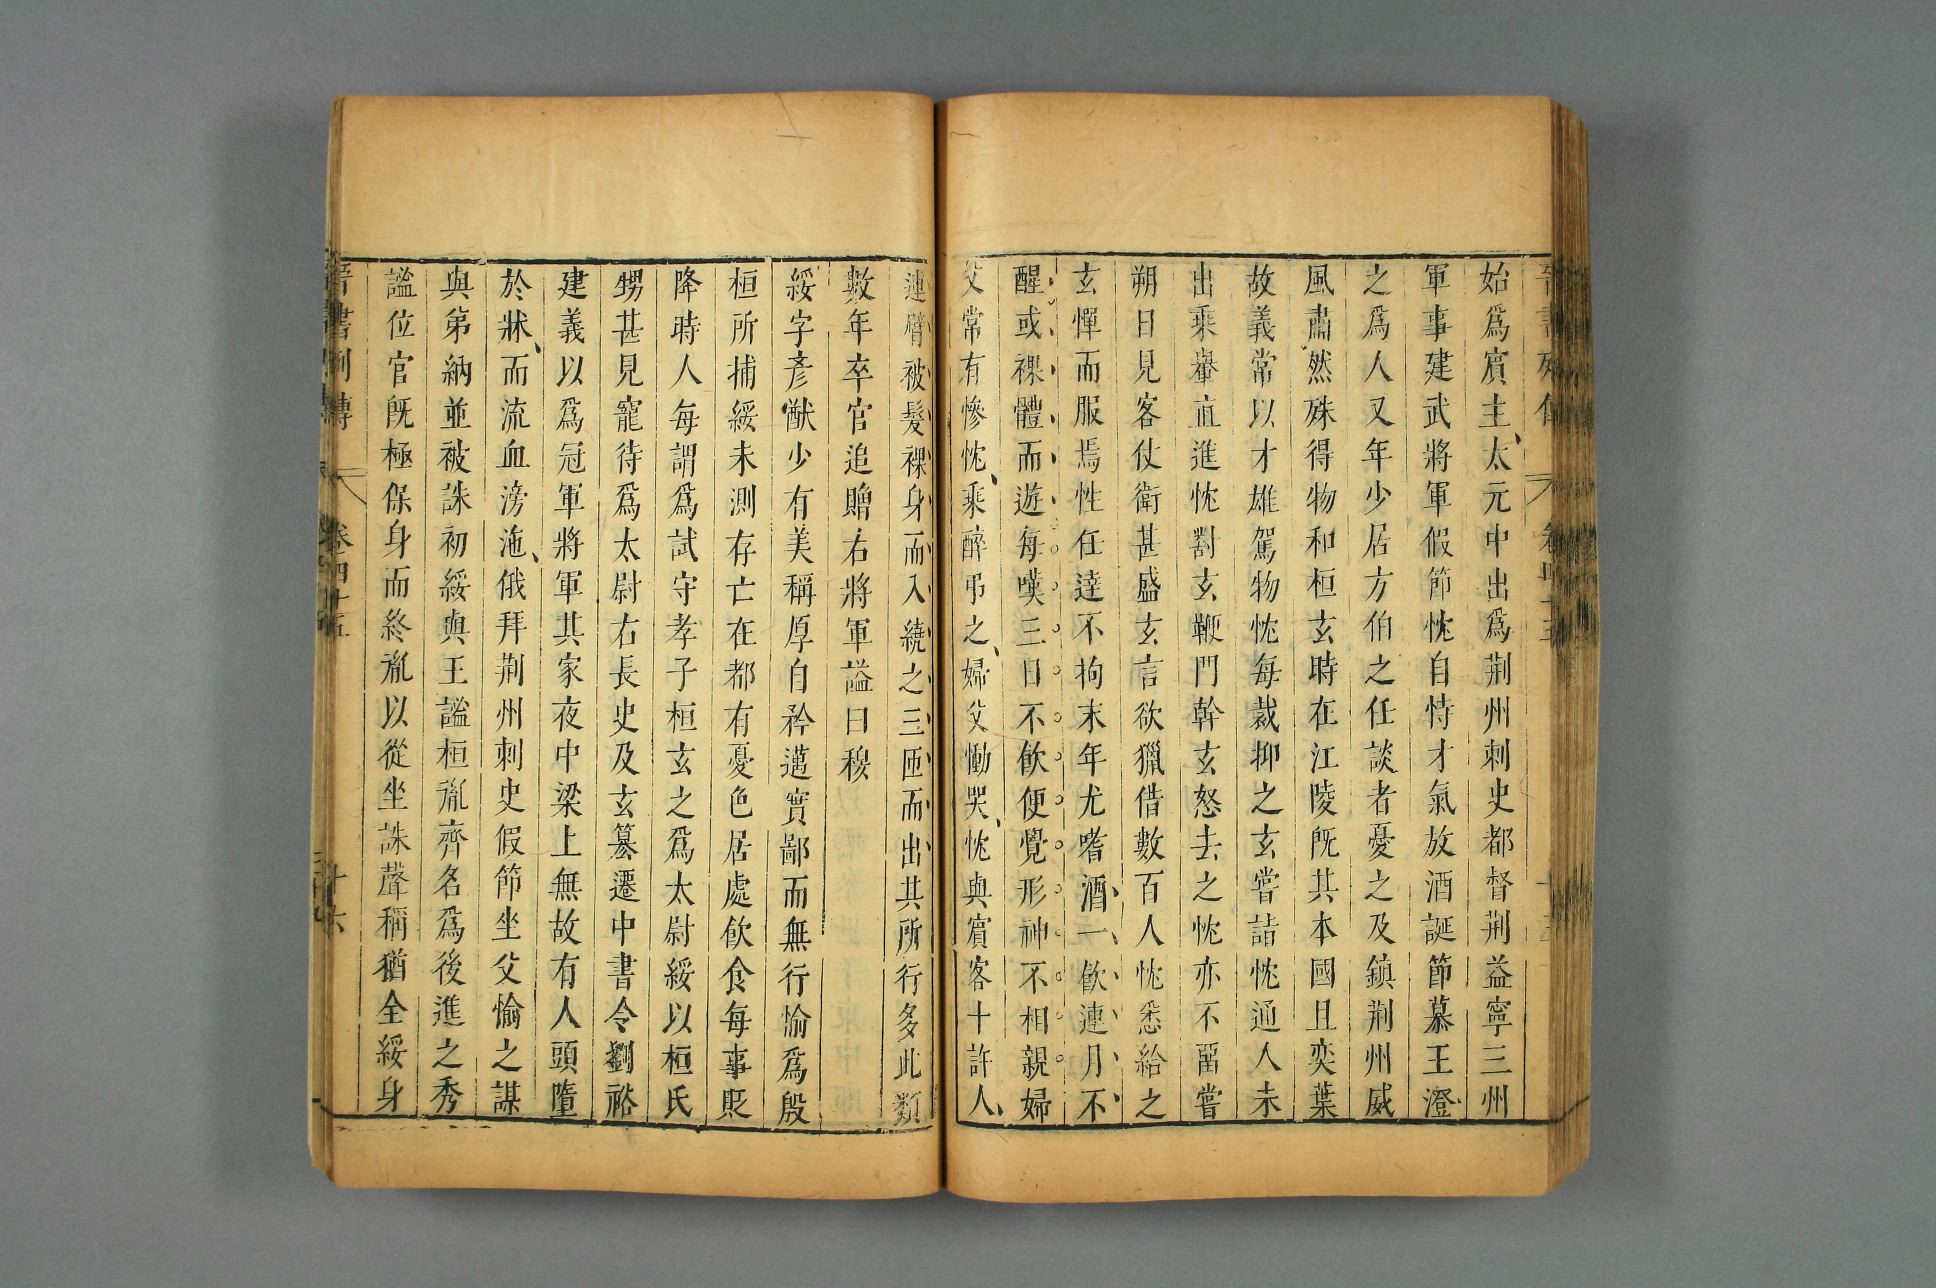 始爲賔主太元中出爲荆州刺史都督荆益寧三州
軍事建武將軍假節忱自恃才氣放酒誕節慕王澄
之爲人又年少居方伯之任談者憂之及鎮荆州威
風肅然殊得物和桓玄時在江陵既其本國且奕葉
故義常以才雄駕物忱每裁抑之玄嘗詣忱通人未
出乘轝直進忱對玄鞭門幹玄怒去之忱亦不畱嘗
朔日見客仗衛甚盛玄言欲獵借數百人忱悉給之
玄憚而服焉性任達不拘末年尤嗜酒一飮連月不
醒或裸體而遊每嘆三日不飮便覺形神不相親婦
父常有慘忱乘醉弔之婦父慟哭忱與賔客十許人
連臂被髮裸身而入繞之三匝而出其所行多此類
數年卒官追贈右將軍謚曰穆
綏字彥猷少有美稱厚自矜邁實鄙而無行愉爲殷
桓所捕綏未測存亡在都有憂色居處飮食每事貶
降時人每謂爲試守孝子桓玄之爲太尉綏以桓氏
甥甚見寵待爲太尉右長史及玄簒遷中書令劉裕
建義以爲冠軍將軍其家夜中梁上無故有人頭墮
於牀而流血滂沲俄拜荆州刺史假節坐父愉之謀
與弟納並被誅初綏與王謐桓胤齊名爲後進之秀
謐位官既極保身而終胤以從坐誅聲稱猶全綏身
晉書列傳 卷四十五 十六